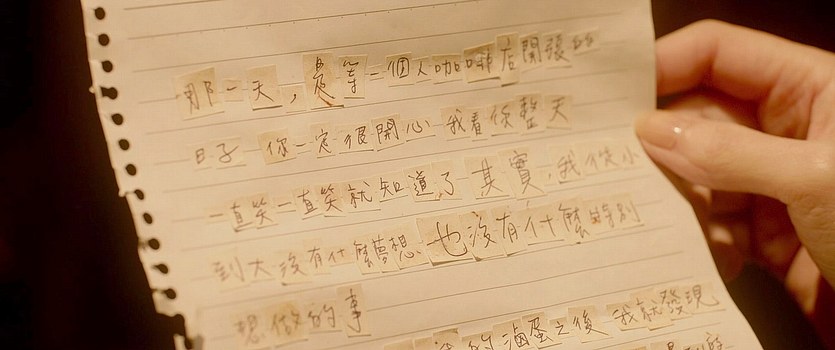 那一天，是等一個人咖啡店開張的
日子 你一定很開心 我看你整天
一直笑一直笑就知道了 其實，我從小
到大沒有什麼夢想 也沒有什麼特別
想做的事
的滷蛋之後 我就發現